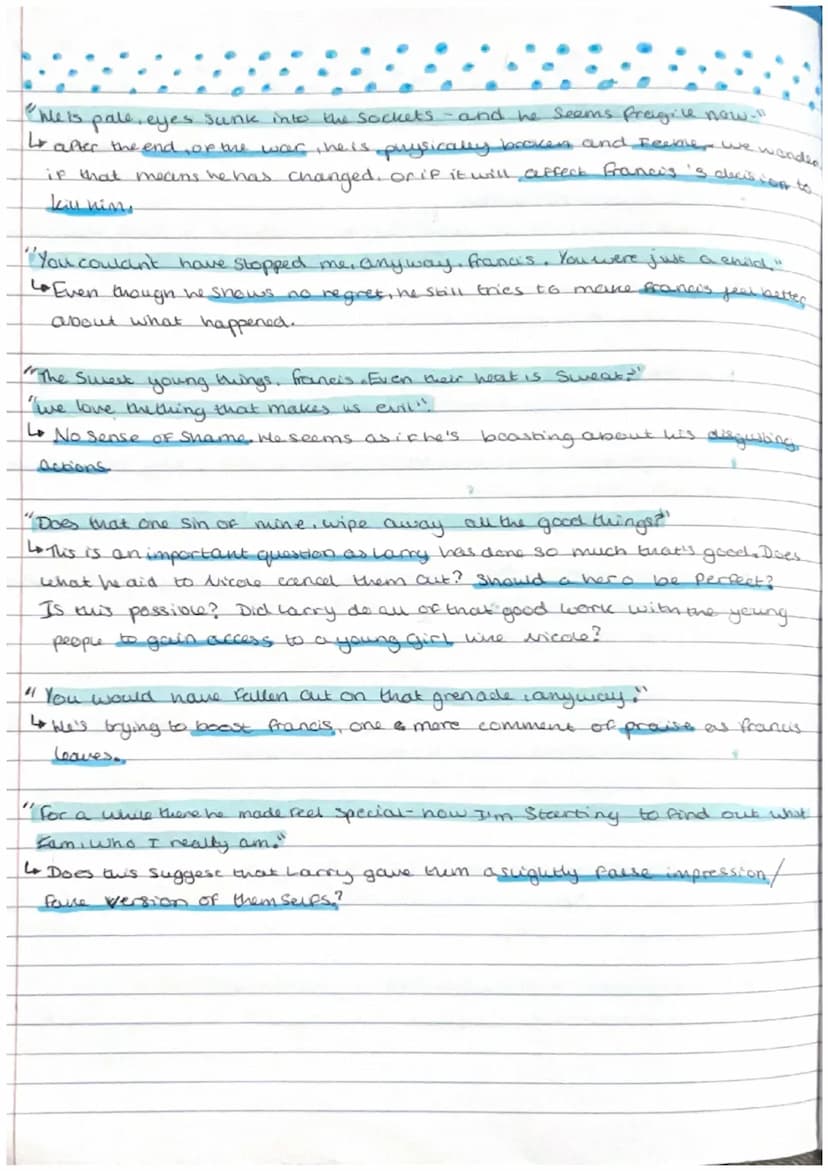 "He is pale, eyes sunk into the sockets - and he seems fragile now."
↳ after the end, of the war, he is physically broken and Feeble. We wonder
if that means he has changed, or if it will affect Francis's decision to
kill him.
"You couldn't have stopped me, anyway, Francis. You were just a child."
↳ Even though he shows no regret, he still tries to make Francis feel better
about what happened.
"The Sweet young things, Francis. Even their heat is Sweat?"
"we love the thing that makes us evil".
↳ No sense of Shame. He seems as if he's boasting about his disgusting
actions.
"Does that one Sin of mine, wipe away all the good things?"
↳ This is an important question as Larry has done so much that's good. Does
what he did to Nicole cancel them out? Should a hero be perfect?
Is this possible? Did Larry do all of that good work with the young
people to gain access to a young girl like Nicole?
"You would have fallen out on that grenade, anyway."
↳ He's trying to boost Francis, one more comment of praise as Francis
leaves.
"For a while there he made feel special - now I'm Starting to find out what
I am, who I really am."
↳ Does this suggest that Larry gave them a slightly false impression/
false version of themselfs?